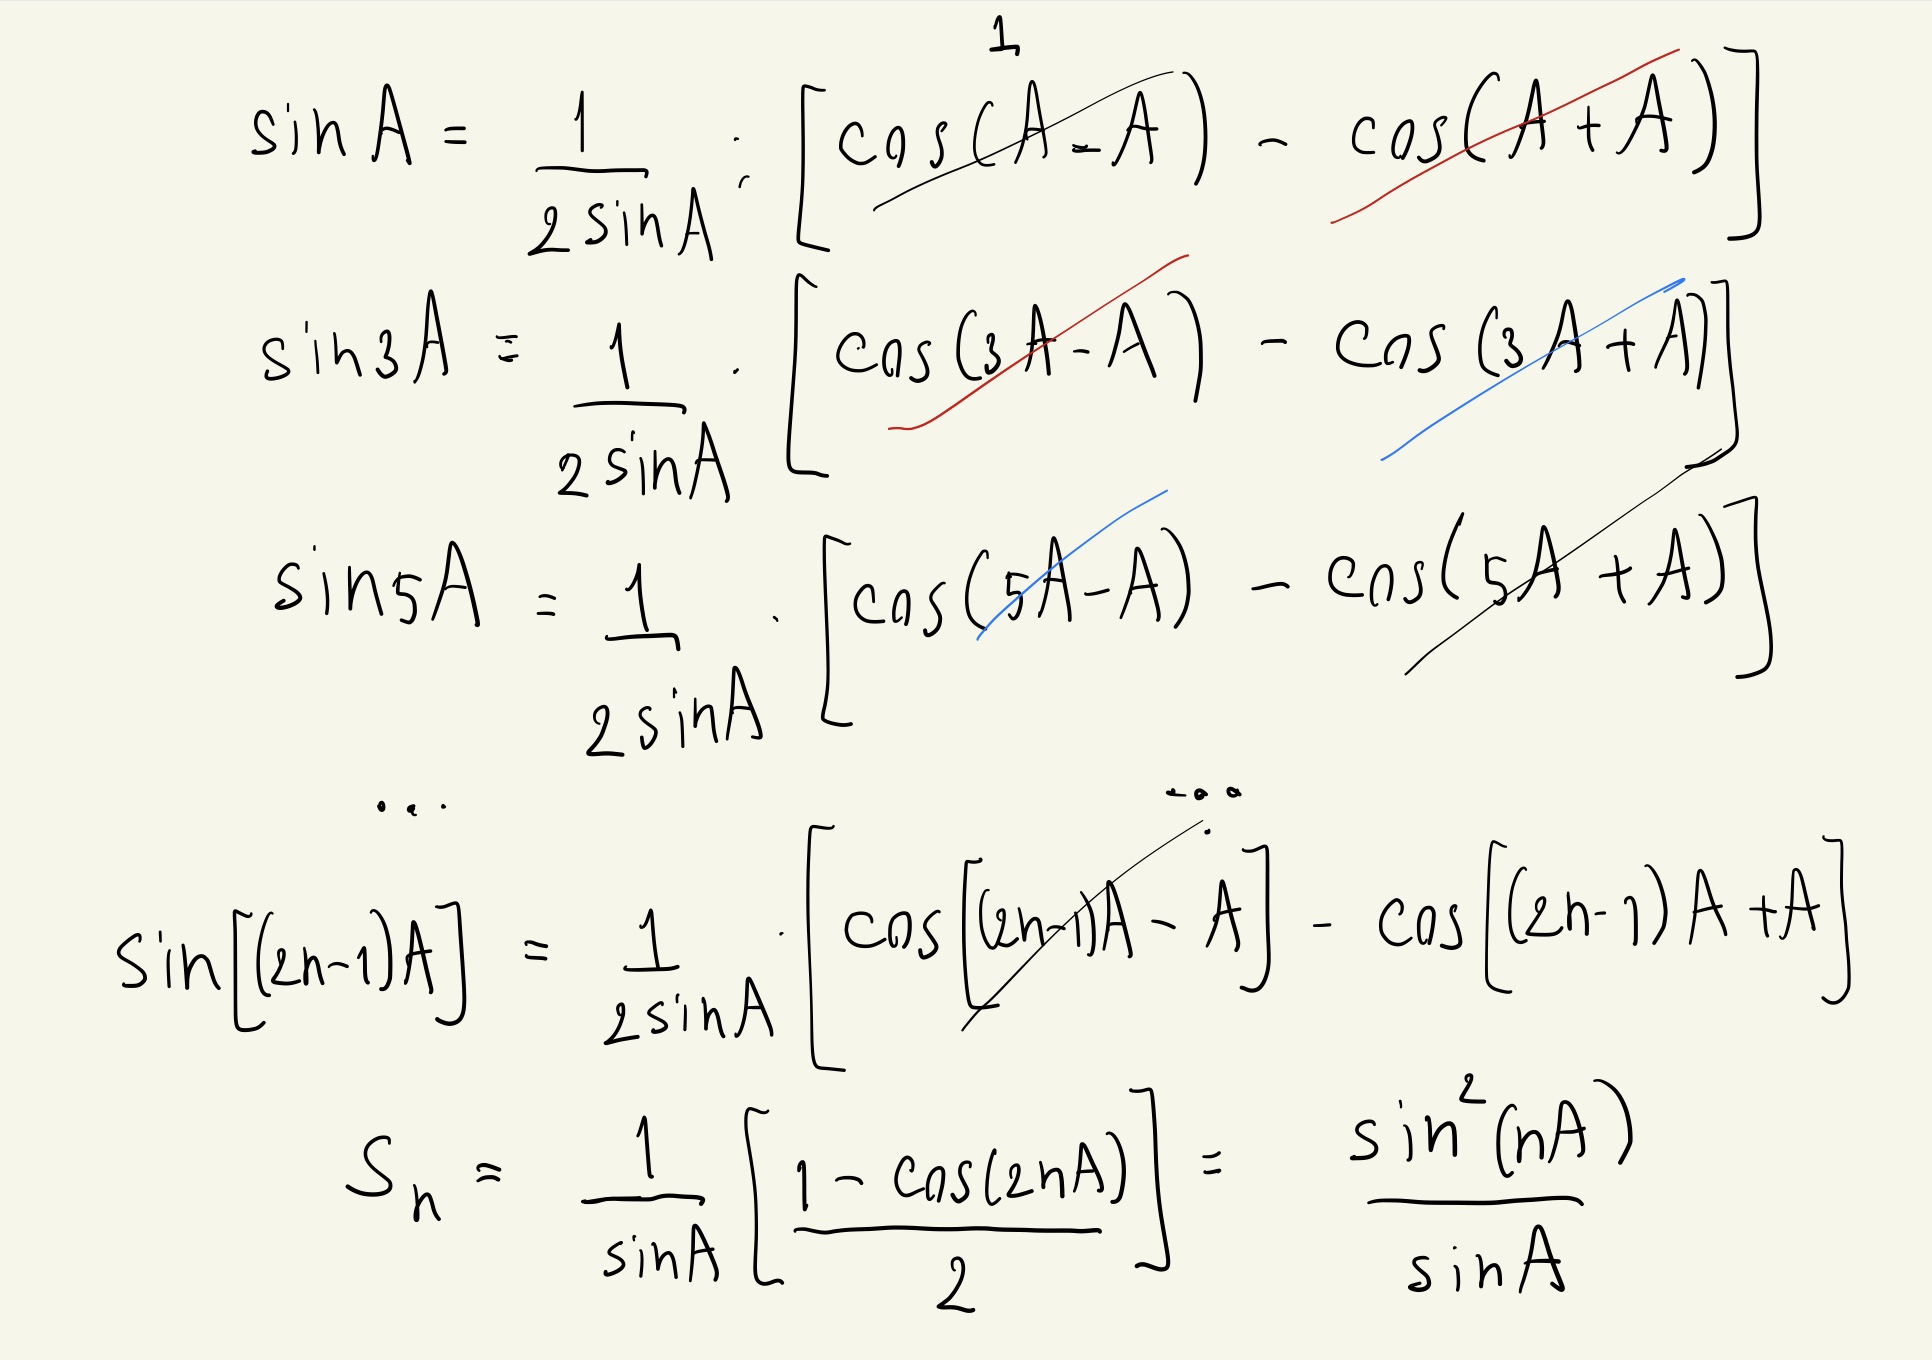 1
sin A = 1/(2 sin A) · [cos(A - A) - cos(A + A)]
sin3A = 1/(2 sinA) · [cos(3A - A) - cos(3A + A)]
sin5A = 1/(2 sinA) · [cos(5A - A) - cos(5A + A)]
... ...
sin[(2n-1)A] = 1/(2sinA) · [cos[(2n-1)A - A] - cos[(2n-1)A + A]
Sn = 1/sinA [(1 - cos(2nA))/2] = sin²(nA)/sinA